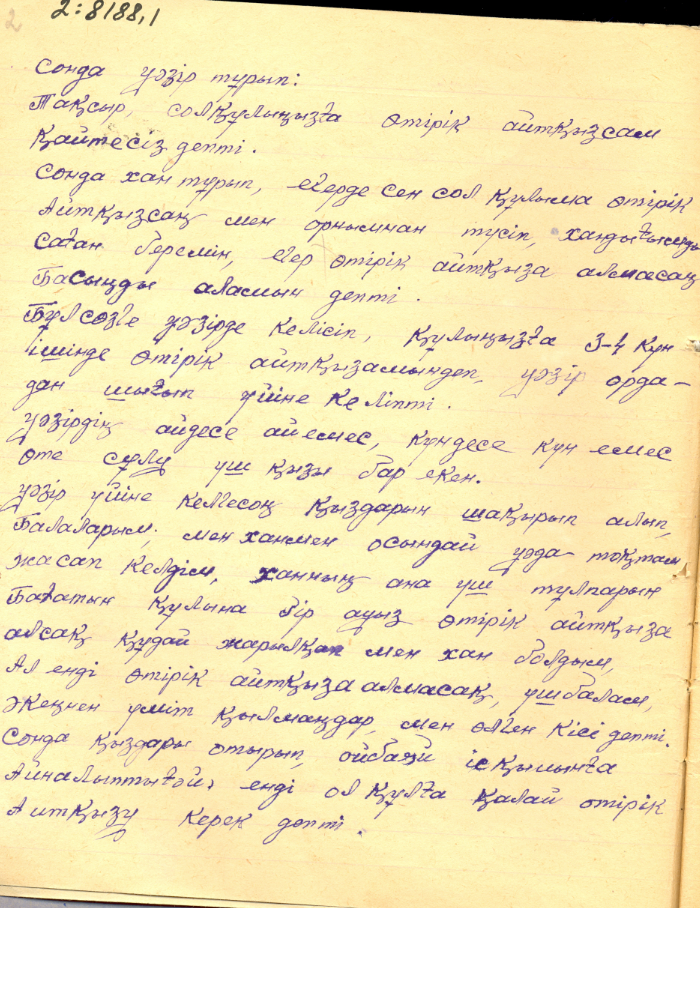 2
2:8188,1
Сонда уәзір тұрып:
Тақсыр, сол құлыңызға өтірік айтқызсам
Қайтесіз депті.
Сонда хан тұрып, егерде сен сол құлыма өтірік
Айтқызсаң мен орнымнан түсіп, хандығымды
Саған беремін, егер өтірік айтқыза алмасаң
Басыңды аламын депті.
Бұл сөзге уәзірде келісіп, құлыңызға 3-4 күн
ішінде өтірік айтқызамындеп, уәзір орда-
дан шығып үйіне келіпті.
Уәзірдің айдесе айемес, күндесе күн емес
өте сұлу үш қызы бар екен.
Уәзір үйіне келгесоң қыздарын шақырып алып,
Балаларым, мен ханмен осындай уәда тоқтам
жасап келдім, ханның ана үш тұлпарын
Бағатын құлына бір ауыз өтірік айтқыза
алсақ құдай жарылқап мен хан болдым,
Ал енді өтірік айтқыза алмасақ, үш балам,
Әкеңнен үміт қылмаңдар, мен өлген кісі депті.
Сонда қыздары отырып, ойбай іс қиынға
Айналыптығой, енді ол құлға қалай өтірік
Айтқызу керек депті.